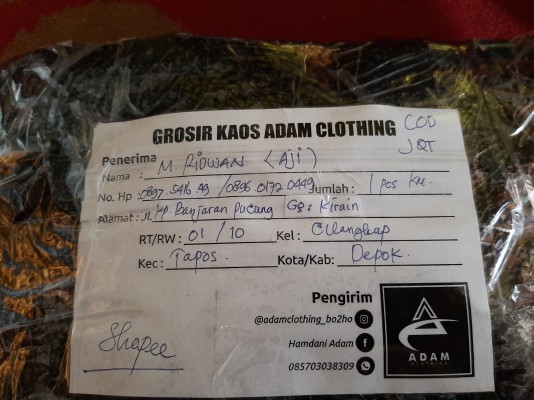 GROSIR KAOS ADAM CLOTHING COD
JQT
Penerima
Nama : M. RiDWAN (Aji)
No. Hp : 0897 5416 99 / 0896 0172 0449 Jumlah : 1 pcs
Alamat : Jl. Kp. Banjaran Pucung Gg: Kirain
RT/RW : 01 / 10 Kel : Cilangkap
Kec : Tapos. Kota/Kab: Depok.
Pengirim
@adamclothing_bo2ho
Hamdani Adam
085703038309
ADAM
CLOTHING
Shopee